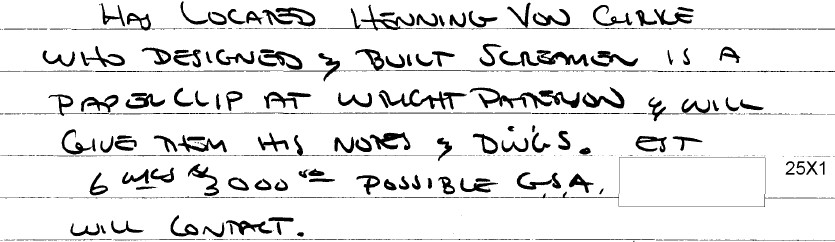 HAS LOCATED HENNING VON GIRKE
WHO DESIGNED & BUILT SCREAMER IS A
PAPERCLIP AT WRIGHT PATTERSON & WILL
GIVE THEM HIS NOTES & DWGS. EST
6 WKS $3000 00 POSSIBLE G.S.A. 25X1
WILL CONTACT.